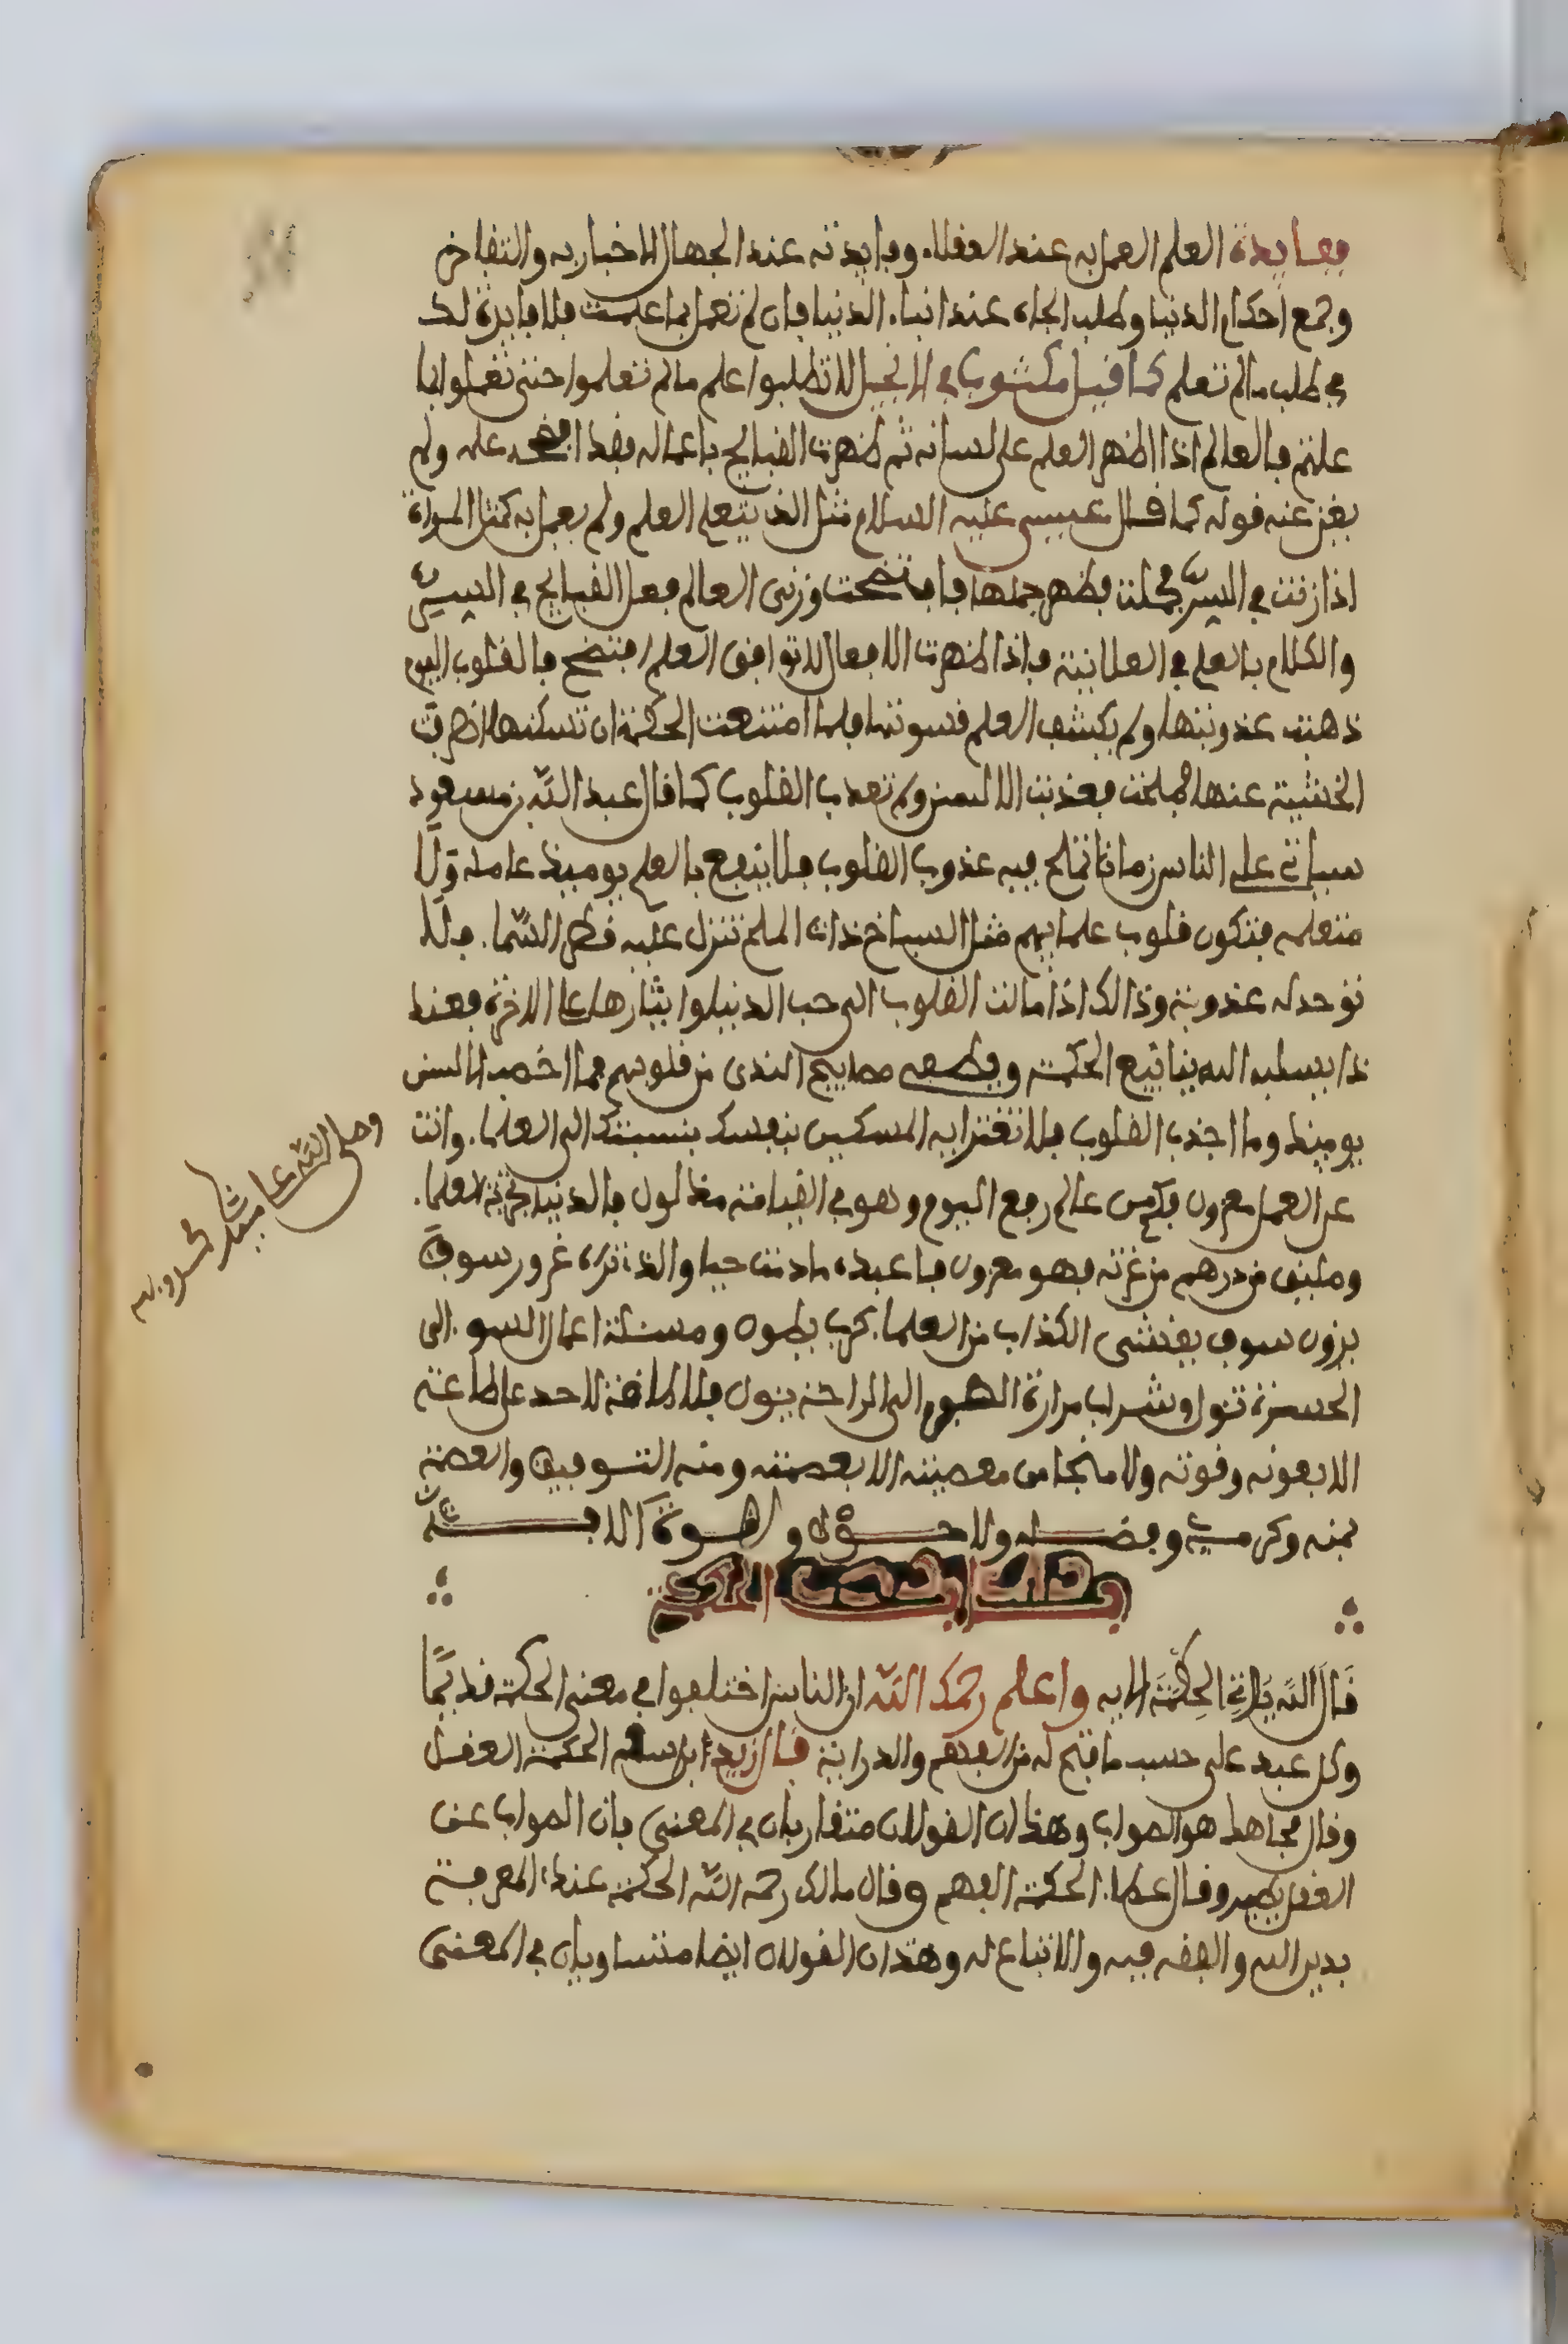 ففايدة العلم العمل به عند العقلاء وفايدته عند الجهال الاخبار به والتفاخر
وجمع احكام الدنيا وطلب الجاه عند ابناء الدنيا فان لم تعمل بما علمت فلا فايدة لك
في طلب ما لم تعلم كما قيل مكتوب في الانجيل لا تطلبوا علم ما لم تعلموا حتى تعملوا بما
علمتم فالعالم اذا اظهر العلم على لسانه ثم ظهرت القبايح باعماله فقد افتضح علمه ولم
يغن عنه قوله كما قال عيسى عليه السلام مثل الذي يتعلم العلم ولم يعمل به كمثل المراة
اذا زنت في السر فحملت فظهر حملها فافتضحت وزنى العالم فعل القبايح في السر
والكلام بالعلم في العلانية فاذا ظهرت الافعال لا توافق العلم افتضح فالقلوب اليوم
ذهبت عذوبتها ولم يكشف العلم قسوتها فلما امتنعت الحكمة ان تسكنها انصرفت
الخشية عنها فملحت فعذبت الالسن ولم تعذب القلوب كما قال عبد الله بن مسعود
سياتي على الناس زمانا تملح فيه عذوب القلوب فلا ينفع بالعلم يوميذ عامله ولا
متعلمه فتكون قلوب علمايهم مثل السباخ ذات الملح تنزل عليه قطر السماء فلا
توجد له عذوبة وذالك اذا مالت القلوب الى حب الدنيا وايثارها على الاخرة فعند
ذا يسلب الله ينابيع الحكمة ويطفى مصابيح الندى من قلوبهم فما اخصب الالسن
يوميذ وما اجدب القلوب فلا تغتر ايه المسكين بنفسك بنسبتك الى العلماء وانت
عن العمل معزول فكم من عالم رفيع اليوم وهو في القيامة مخذول فالدنيا العلماء
من درهم من غرته فهو معزول فاعبده ما دمت حيا والذي تراه غرور سوف
يزول سوف يفتشى الكذاب من العلماء بكرب يطول ومسئلة اعمال السوء الى
الحسرة تئول وشراب مرارة الهموم الى الراحة يئول فلا طاقة لاحد على طاعته
الا بعونه وقوته ولا منجا من معصيته الا بعصمته ومنه التوفيق والعصمة
بمنه وكرمه وفضله ولا حول ولا قوة الا به
الحكمة
قال الله يؤتي الحكمة الايه واعلم رحمك الله ان الناس اختلفوا في معنى الحكمة قديما
وكل عبد على حسب ما فتح له من الفهم والدراية قال زيد ابن اسلم الحكمة العقل
وقال مجاهد هو الصواب وهذان القولان متقاربان في المعنى فان الصواب عن
العقل يصير وقال عطاء الحكمة الفهم وقال مالك رحمه الله الحكمة عندي المعرفة
بدين الله والفقه فيه والاتباع له وهذان القولان ايضا متساويان في المعنى
وصلى الله على سيدنا محمد وءاله